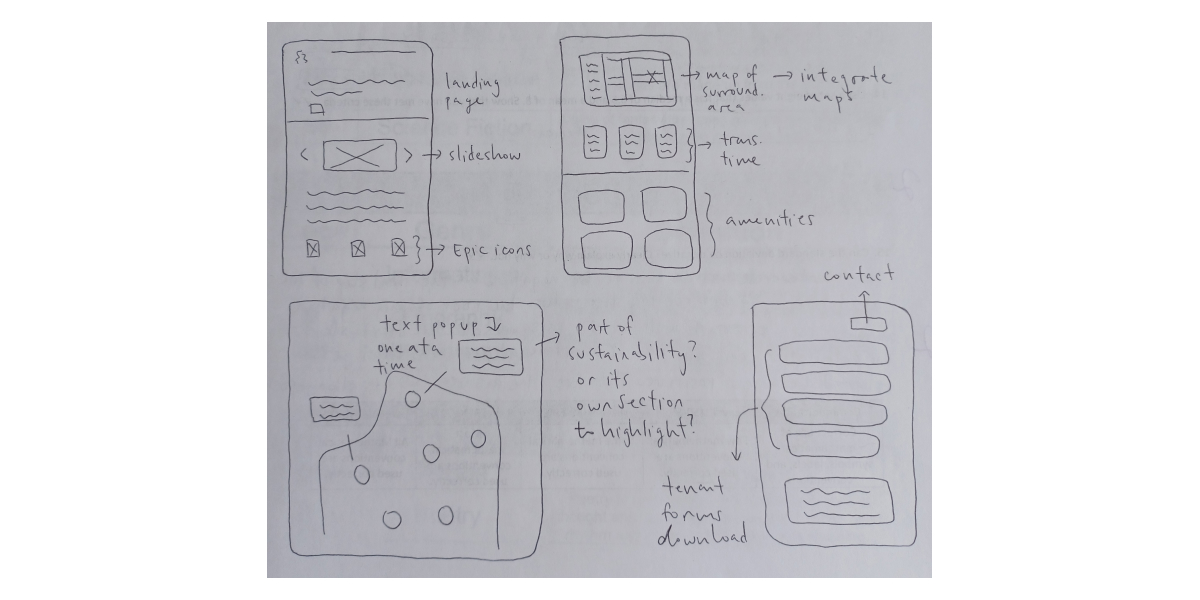 landing
page
slideshow
Epic icons
map of
surround.
area
integrate
maps
trans.
time
amenities
text popup
one at a
time
part of
sustainability?
or its
own section
to highlight?
contact
tenant
forms
download